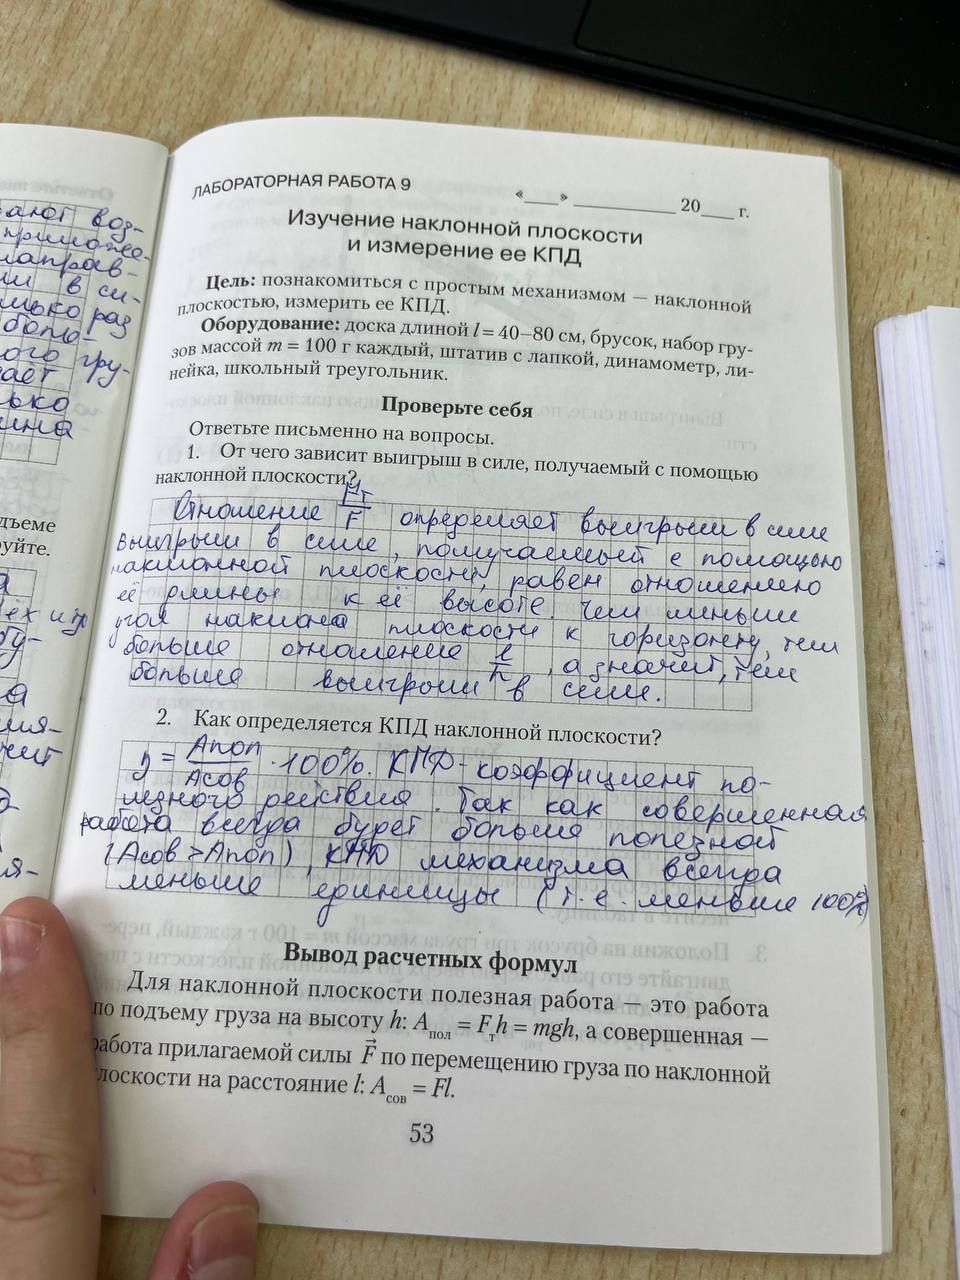 ают воз-
приложе-
направ-
ли в си-
лько раз
боль-
ного гру-
дает
лько
ина
дъеме
руйте.
ЛАБОРАТОРНАЯ РАБОТА 9
«____» ____________ 20____ г.
Изучение наклонной плоскости
и измерение ее КПД
Цель: познакомиться с простым механизмом — наклонной
плоскостью, измерить ее КПД.
Оборудование: доска длиной l = 40–80 см, брусок, набор гру-
зов массой m = 100 г каждый, штатив с лапкой, динамометр, ли-
нейка, школьный треугольник.
Проверьте себя
Ответьте письменно на вопросы.
1. От чего зависит выигрыш в силе, получаемый с помощью
наклонной плоскости?
Отношение Fт/F определяет выигрыш в силе
Выигрыш в силе, получаемый с помощью
наклонной плоскости, равен отношению
её длины к её высоте. Чем меньше
угол наклона плоскости к горизонту, тем
больше отношение l/h, а значит, тем
больше выигрыш в силе.
2. Как определяется КПД наклонной плоскости?
η = Aпол/Aсов · 100%. КПД - коэффициент по-
лезного действия. Так как совершенная
работа всегда будет больше полезной
(Aсов > Aпол), КПД механизма всегда
меньше единицы (т.е. меньше 100%)
Вывод расчетных формул
Для наклонной плоскости полезная работа — это работа
по подъему груза на высоту h: Aпол = Fтh = mgh, а совершенная —
работа прилагаемой силы F⃗ по перемещению груза по наклонной
плоскости на расстояние l: Aсов = Fl.
53